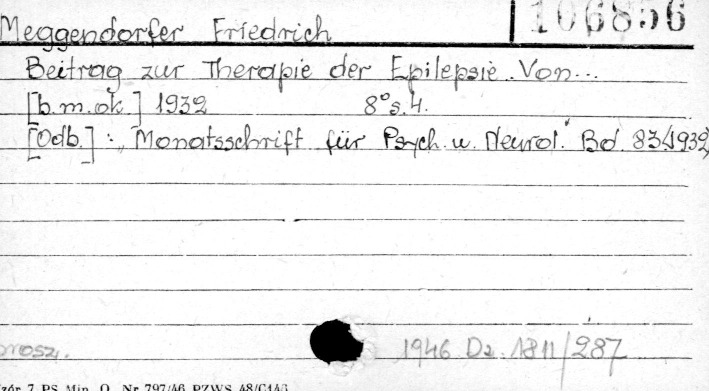 106856
Meggendorfer Friedrich
Beitrag zur Therapie der Epilepsie. Von...
[b.m.ok.] 1932 8° s. 4.
[Odb.]: „Monatsschrift für Psych. u. Neurol." Bd. 83/1932
1946 Dz. 1811/287
Nr 797/46 PZWS